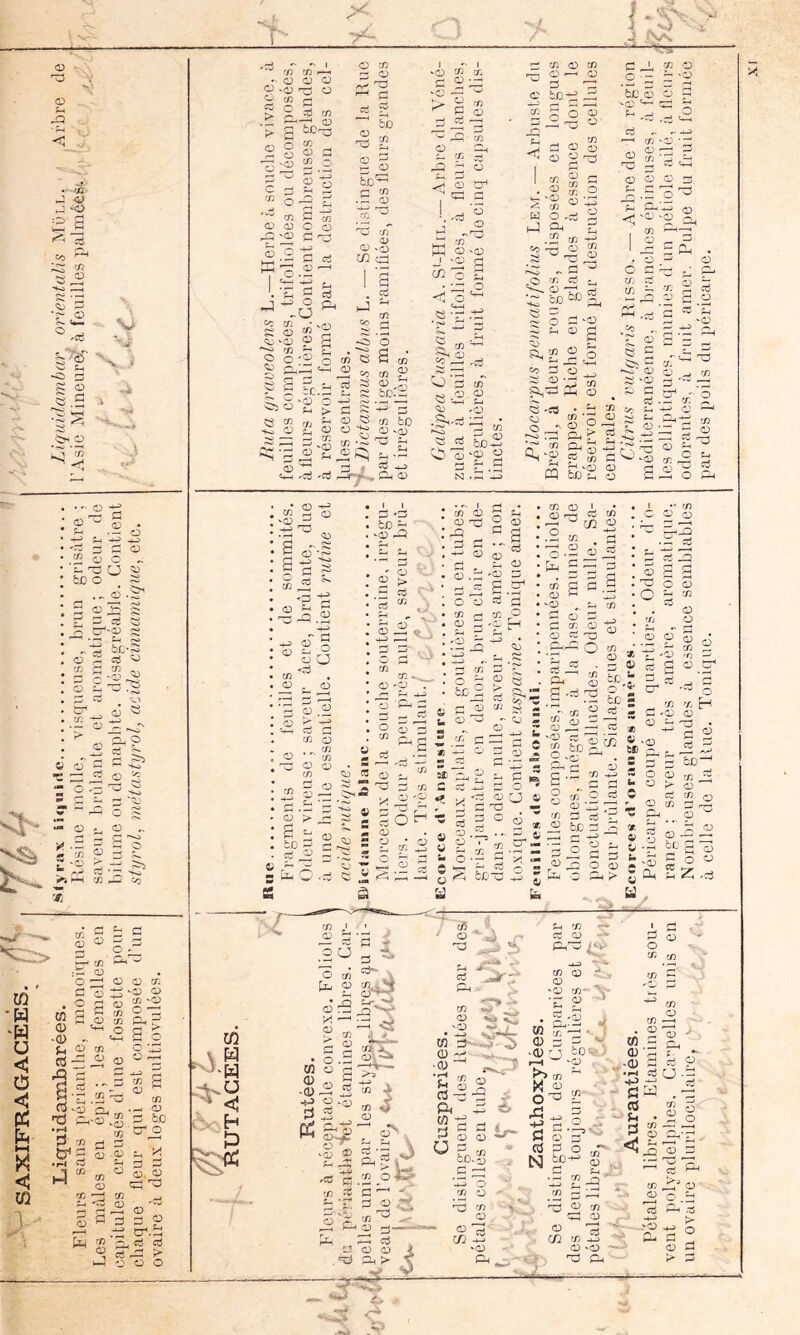 XI
SAXIFRAGACÉES.
Liquidambarées.
Fleurs sans périanthe, monoïques.
Les mâles en épis; les femelles en
capitules creusés d'une fossette pour
chaque fleur qui est composée d'un
ovaire à deux loges multiovulées.
Styrax liquide
Résine molle, visqueuse, brun grisâtre;
saveur brûlante et aromatique; odeur de
bitume ou de naphte. désagréable. Contient
styrol, métastyrol, acide cinnamique, etc.
Liquidambar orientalis MÜLL. — Arbre de
l'Asie Mineure, à feuilles palmées.
RUTACÉES.
Rutées.
Fleurs à réceptacle convexe. Folioles
du périanthe et étamines libres. Car-
pelles unis par les styles, libres au ni-
veau de l'ovaire.
Rue
Fragments de feuilles et de sommités.
Odeur vireuse; saveur âcre, brûlante, due
à une huile essentielle. Contient rutine et
acide rutique.
Ruta graveolens L.—Herbe à souche vivace, à
feuilles composées, trifoliolées ou décomposées,
à fleurs régulières. Contient nombreuses glandes,
à réservoir formé par la destruction des cel-
lules centrales.
Dictame blanc
Morceaux de la souche souterraine, irrégu-
liers. Odeur à peu près nulle, saveur brû-
lante. Très stimulant.
Dictamnus albus L. — Se distingue de la Rue
par des tiges moins ramifiées, des fleurs grandes
et irrégulières.
Cuspariées.
Se distinguent des Rutées par des
pétales collés en tube,
Ecorce d'Angusture
Morceaux aplatis, en gouttières ou en tubes;
gris-jaunâtre en dehors, brun clair en de-
dans; odeur nulle, saveur très amère; non
toxique. Contient cusparine. Tonique amer.
Galipea Cusparia A. ST-HIL.— Arbre du Véné-
zuela à feuilles trifoliolées, à fleurs blanches,
irrégulières, à fruit formé de cinq capsules dis-
tinctes.
Zanthoxylées.
Se distinguent des Cuspariées par
des fleurs toujours régulières et des
pétales libres,
Feuilles de Jaborandi
Feuilles composées, imparipennées. Folioles
oblongues, inégales à la base, munies de
ponctuations pellucides. Odeur nulle. Sa-
veur brûlante. Sialagogues et stimulantes.
Pilocarpus pennatifolius LEM. — Arbuste du
Brésil, à fleurs rouges, disposées en longues
grappes. Riche en glandes à essence dont le
réservoir est formé par destruction des cellules
centrales.
Aurantiées.
Pétales libres. Etamines très sou-
vent polyadelphes. Carpelles unis en
un ovaire pluriloculaire,
Ecorces d'oranges amères
Péricarpe coupé en quartiers. Odeur d'o-
range; saveur très amère, aromatique;
Nombreuses glandes à essence semblables
à celle de la Rue. Tonique.
Citrus vulgaris RISSO. — Arbre de la région
méditerranéenne, à branches épineuses, à feuil-
les elliptiques, munies d'un pétiole ailé, à fleurs
odorantes, à fruit amer. Pulpe du fruit formée
par des poils du péricarpe.